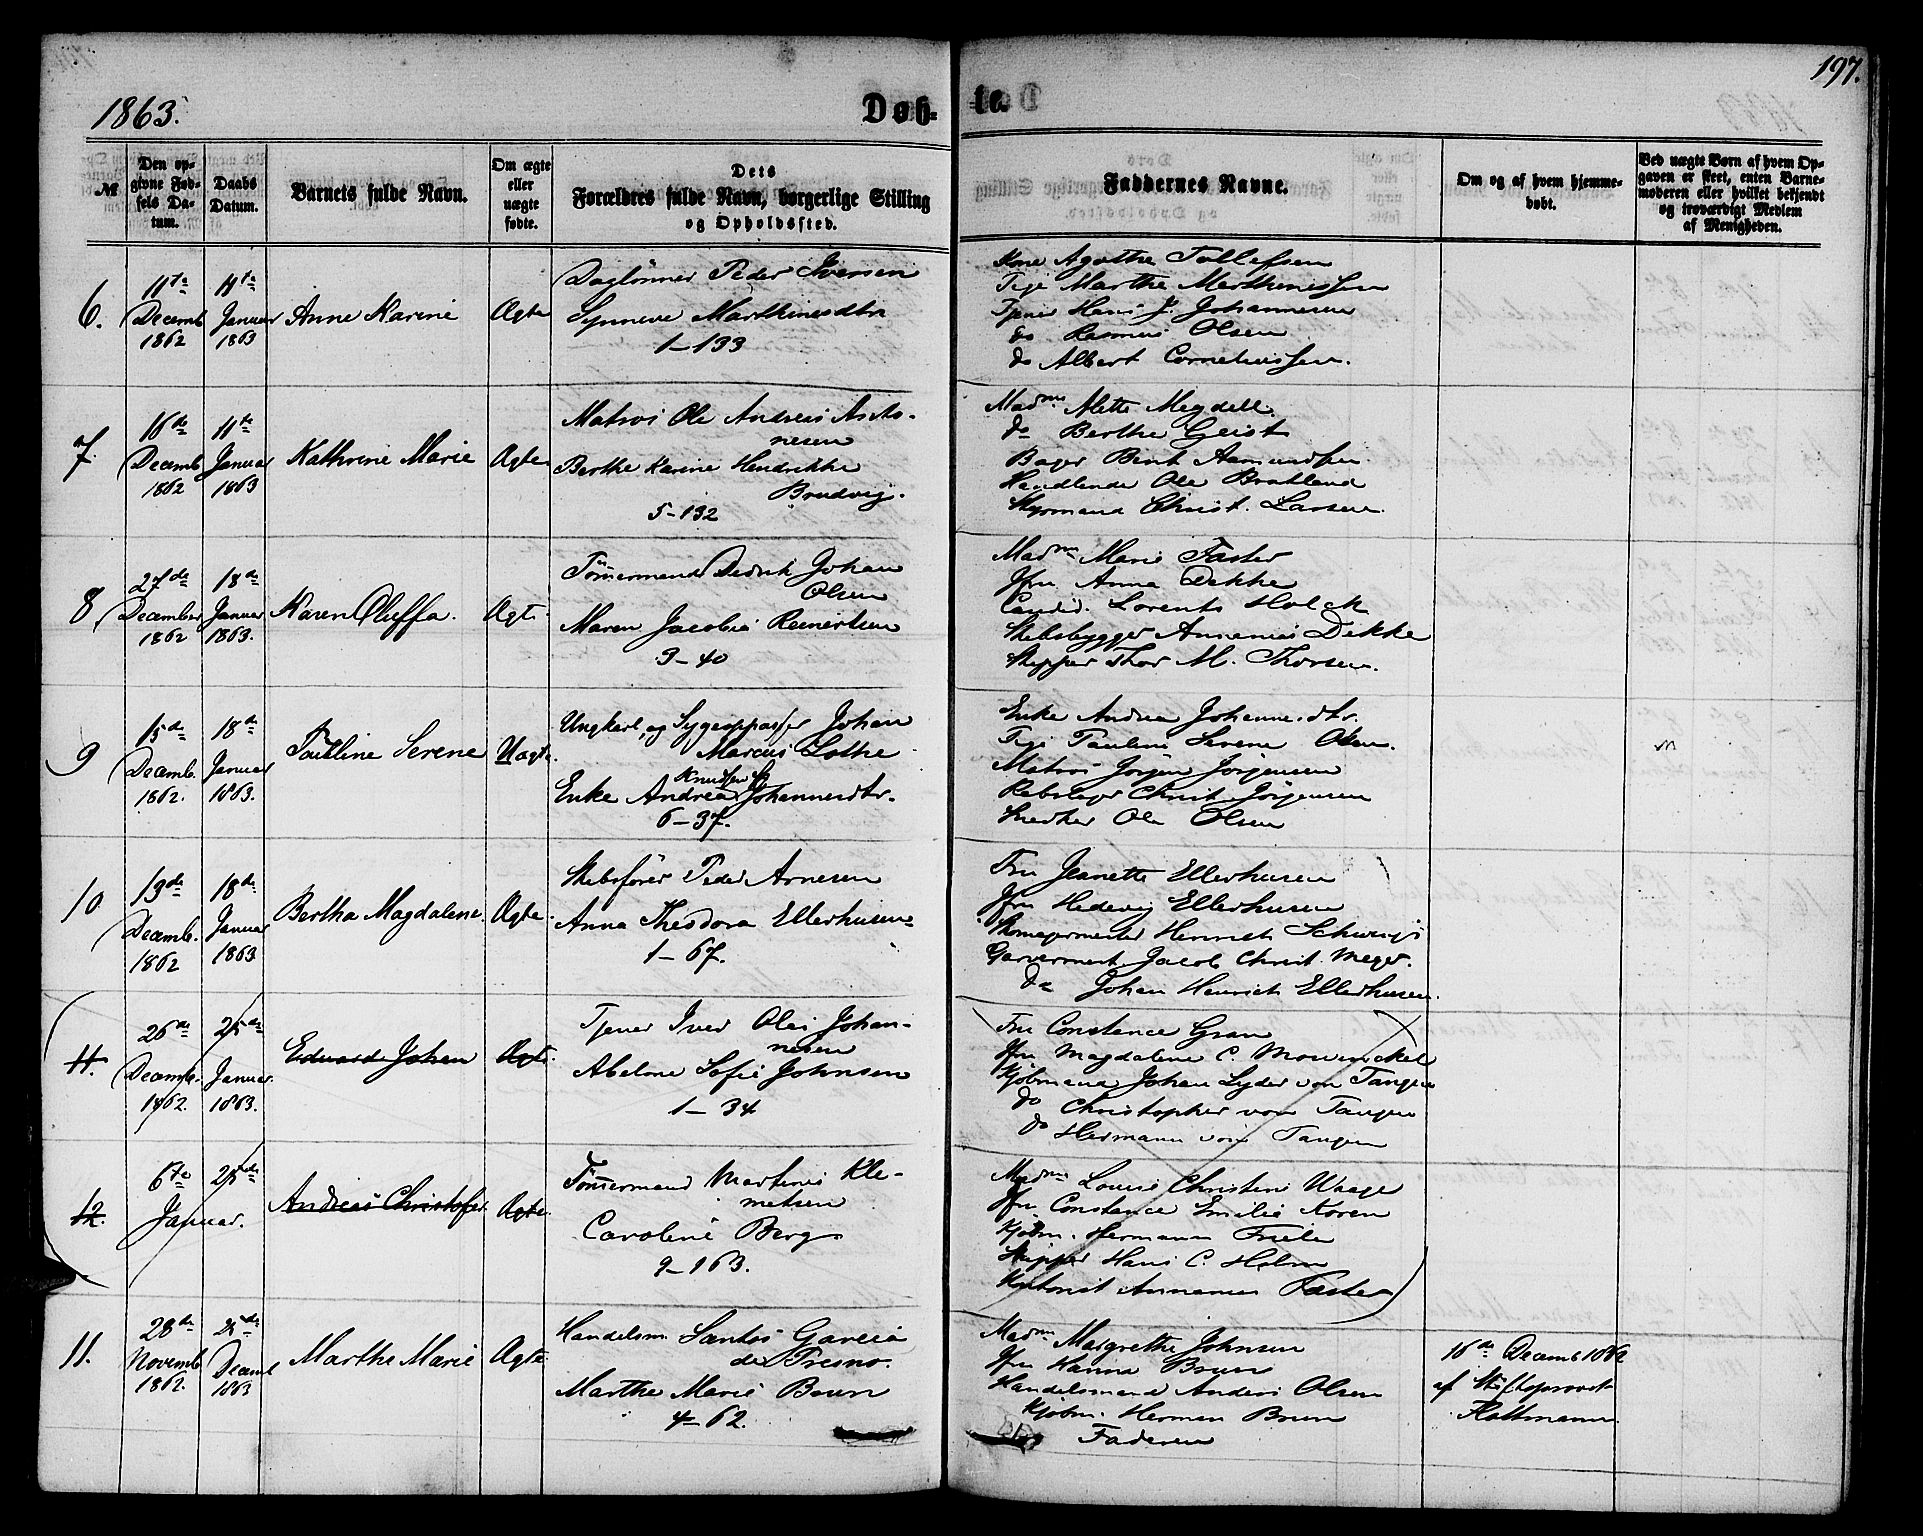 197.
1863.
Døb-
te.
№
Den op-
givne Fød-
sels Da-
tum.
Daabs
Datum.
Barnets fulde Navn.
Om ægte
eller
uægte
fødte.
Dets
Forældres fulde Navn, borgerlige Stilling
og Opholdssted.
Faddernes Navne.
Om og af hvem hjemme-
døbt.
Ved uægte Børn af hvem Op-
gaven er skeet, enten Barne-
moderen eller hvilket bekjendt
og troværdigt Medlem
af Menigheden.
6.
11te
Decemb
1862
11te
Januar
1863
Anne Karine
Ægte
Daglönner Peder Iversen
Synneve Marthinesdtr
1-133
Kone Agathe Tollefsen
Pige Marthe Marthinessen
Tjener Hans J. Johannesen
do Rasmus Olsen
do Albert Corneliussen.
7.
16de
Decemb
1862
11te
Januar
1863
Kathrine Marie
Ægte
Matros Ole Andreas
nesen
Berthe Karine Hendrikke
Brudvig.
5-132
Madme Alette Meydell.
do Berthe Geist
Bager Bent Aamundsen
Handlende Ole Bratland
Styrmand Christ. Larsen.
8
27de
December
1862
18de
Januar
1863.
Karen Oluffa.
Ægte.
Tömmermand Didrik Johan
Olsen
Maren Jacobie Reinertsen
3-40
Madme Marie Faster
Jfr Anna Dekke
Candid. Lorents Holck
Skibsbygger Annanias Dekke
Skipper Thor M. Thorsen.
9
15de
Decemb.
1862.
18de
Januar
1863.
Pauline Serene
Uægte.
Ungkarl og Sygeopasser Johan
Marcus Lothe
Knudsen
Enke Andrea Johannesdtr.
6-37.
Enke Andrea Johannesdtr.
Pige Pauline Serene Olsen.
Matros Jörgen Jörgensen
Rebslager Christ. Jörgensen
Snedker Ole Olsen
10
13de
Decemb.
1862
18de
Januar
1863
Bertha Magdalene.
Ægte.
Skibsförer Peder Arnesen
Anna Theodora Ellerhusen
1-67.
Fru Jeanette Ellerhusen
Jfru Hedevig Ellerhusen
Skomagermester Henrich
Garvermest. Jacob Christ. Meyer.
do Johan Henrich Ellerhusen.
11.
26de
Decemb.
1862.
25de
Januar.
1863.
Edvard Johan
Ægte.
Tjener Iver Olai Johan-
nesen
Abelone Sofie Johnsen
1-34
Fru Constance Gran
Jfru Magdalene C. Mowinckel
Kjöbmand Johan Lyder von Tangen
do Christopher von Tangen
do Hermann von Tangen
12.
6te
Januar.
25de
Andreas Christofer.
Ægte.
Tömmermand Martinus Kle-
metsen
Caroline Berg
9-163.
Madme Louise Christine Waage
Jfru Constance Emilie Koren
Kjöbm. Hermann Friele
Skipper Hans C. Holm
Kontorist Annanias Faster
11.
28de
Novemb
1862.
25de
Decemb
1863
Marthe Marie
Ægte
Handelsm. Santos Garcia
de Presno.
Marthe Marie Brun
4-62.
Madme Margrethe Johnsen
Jfru Hanna Brun
Handelsmand Anders Olsen
Kjöbm. Herman Brun
Faderen
16de Decemb 1862
af Stiftsprovst